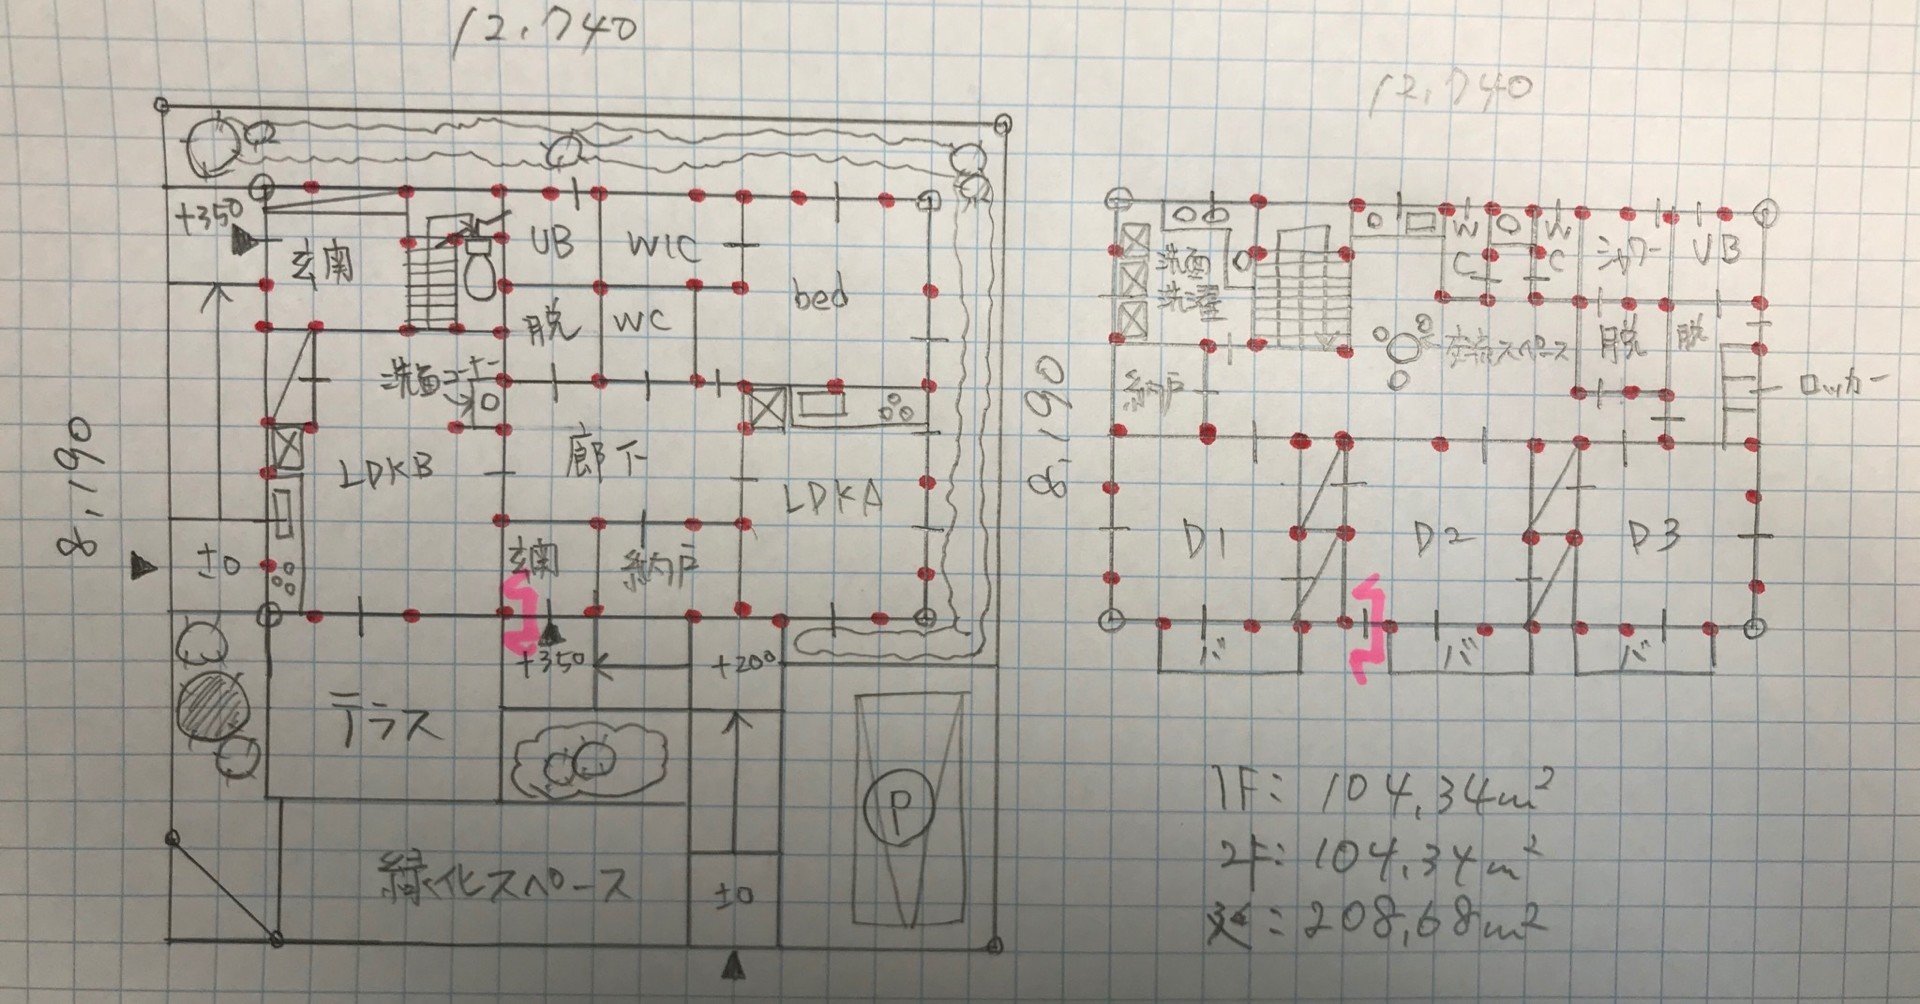 12.740
+350
玄関
UB
WIC
bed
脱
WC
洗面コ
LDKB
廊下
LDKA
8.190
±0
玄関
納戸
+350
+200
テラス
P
緑化スペース
±0
12.740
洗面
洗濯
W
C
W
C
シャワー
UB
脱
脱
ロッカー
納戸
8.190
D1
D2
D3
バ
バ
バ
1F: 104.34m²
2F: 104.34m²
: 208.68m²